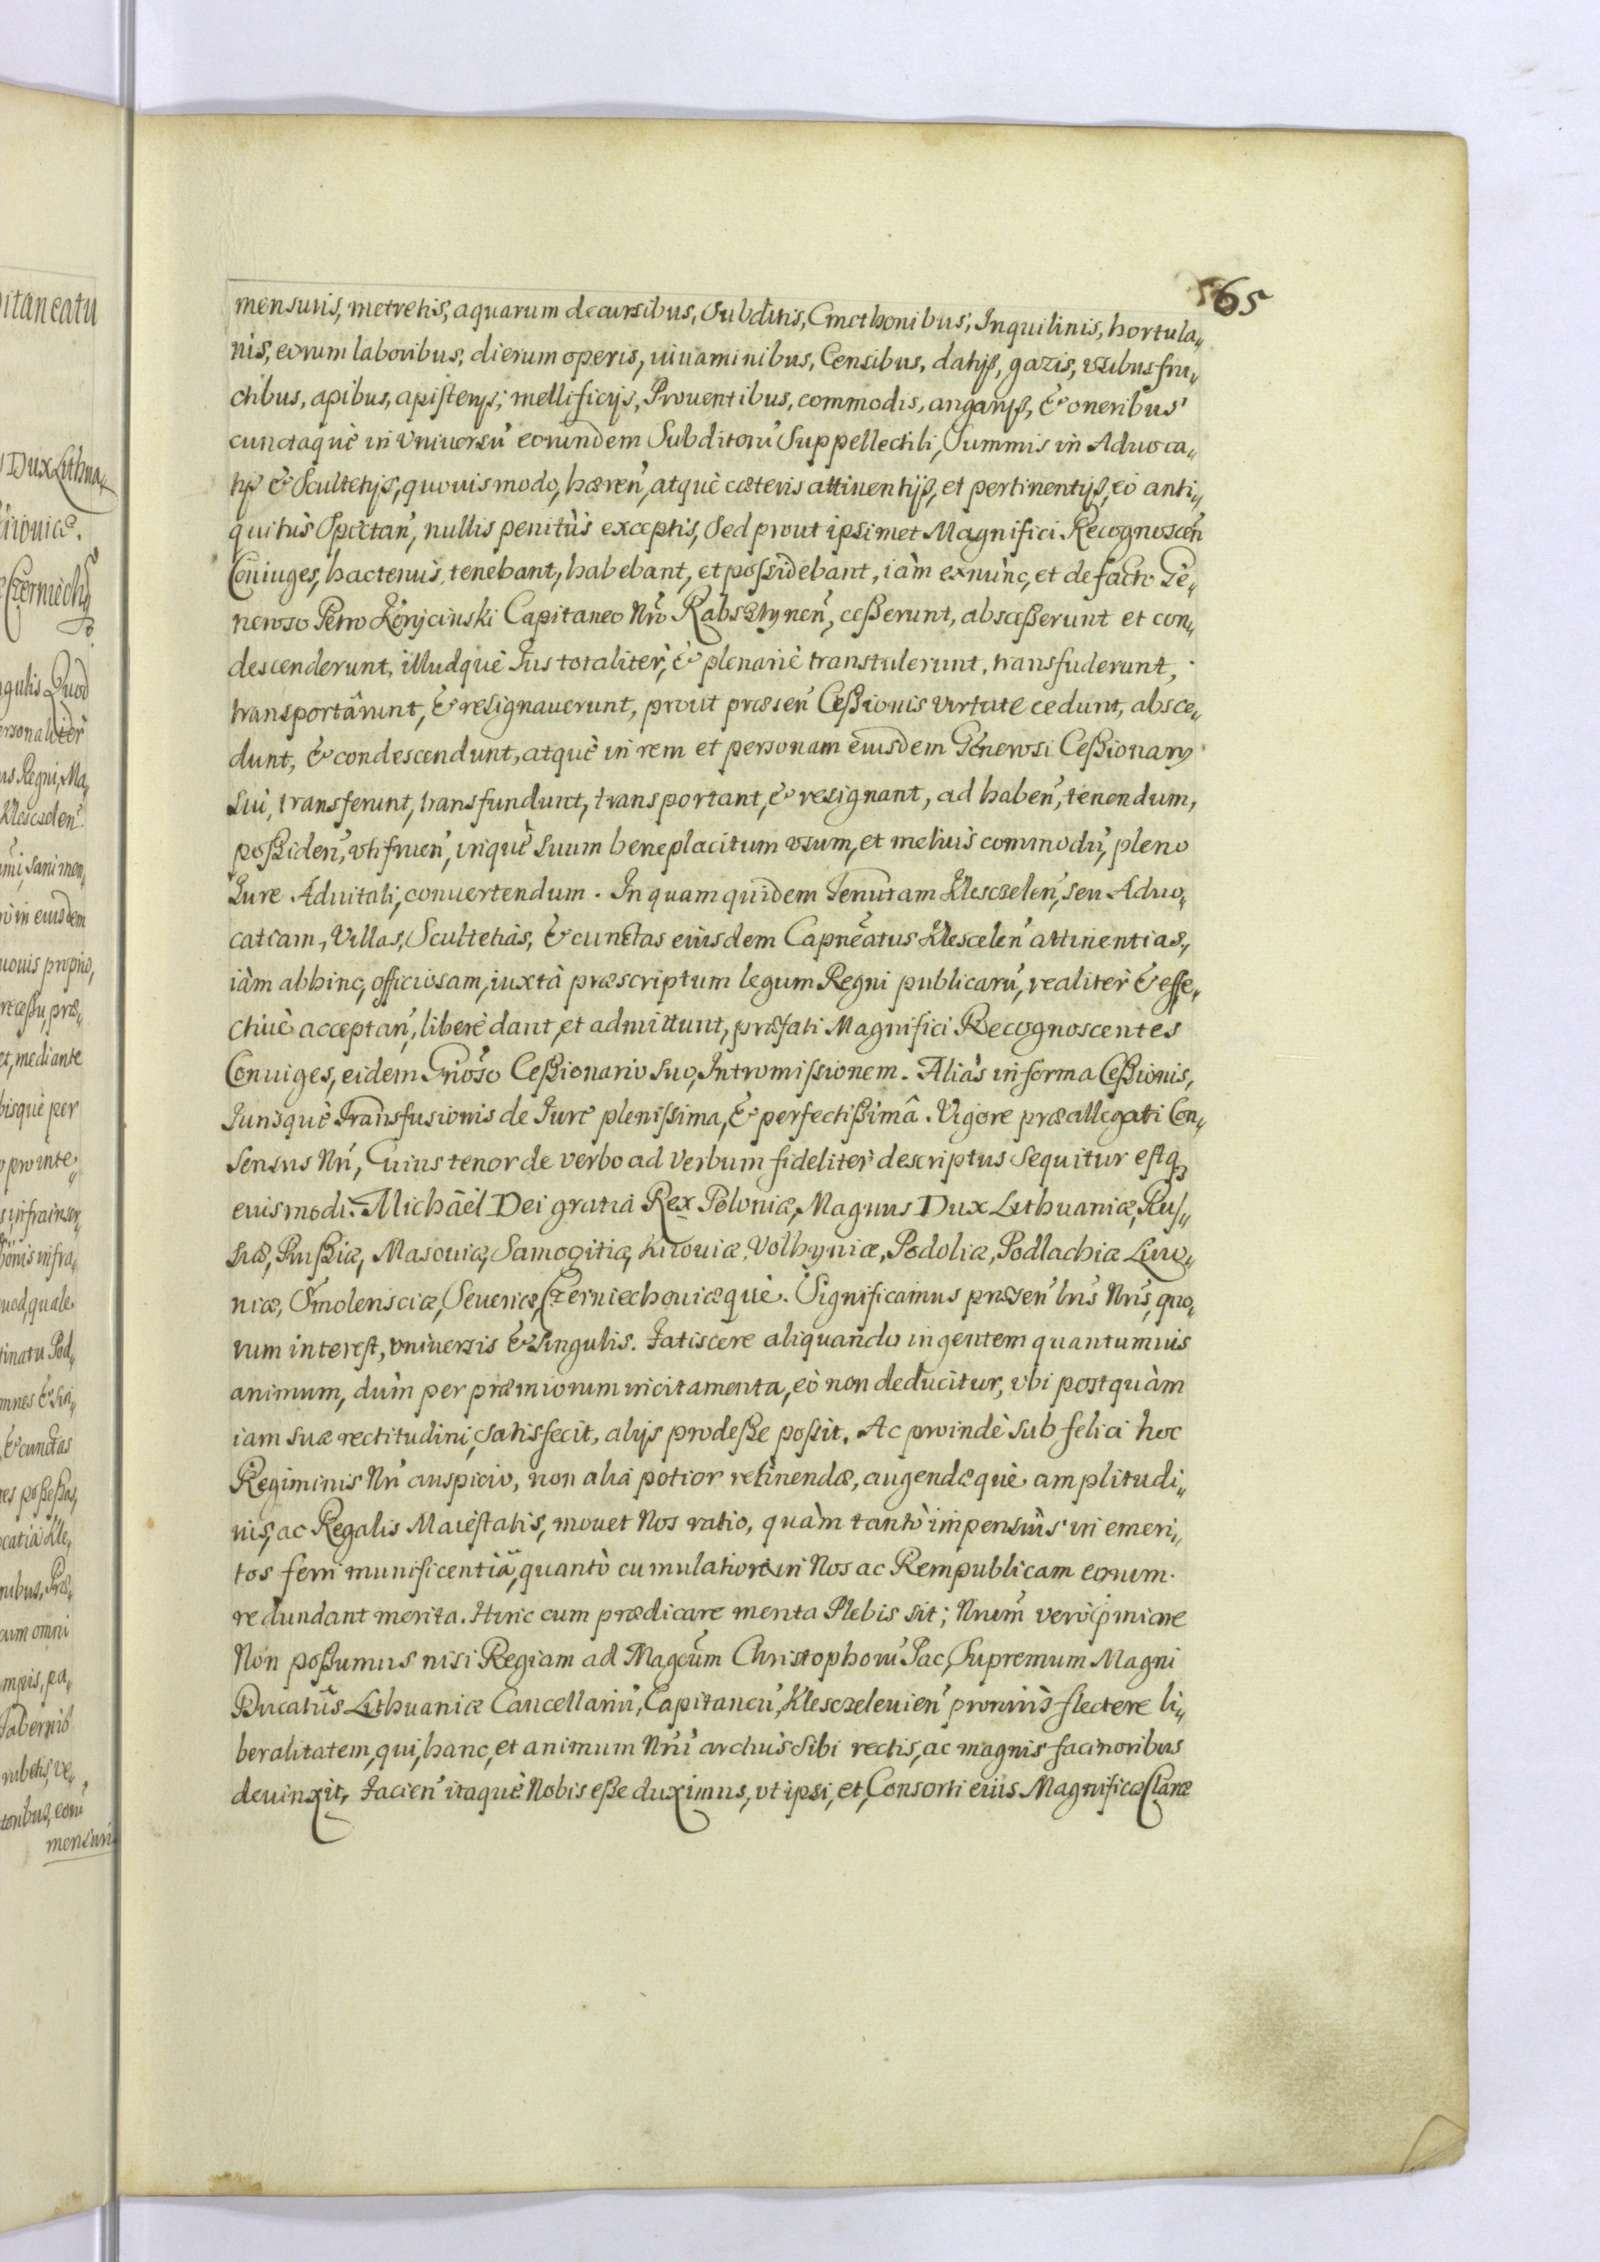 565
mensuris, metretis, aquarum decursibus, Subditis, Cmethonibus, Inquilinis, hortula„
nis, eorum laboribus, dierum operis, uiuaminibus, Censibus, datijs, gazis, vsibus fru„
ctibus, apibus, apisterijs, mellificijs, Prouentibus, commodis, angarijs, & oneribus
cunctaquè in Vniuersũ eorundem Subditorũ Suppellectili, Summis in Aduoca„
tijs & Scultetijs, quouis modo, hæreñ, atquè cæteris attinentijs, et pertinentijs, eò anti„
quitùs Spectañ, nullis penitùs exceptis, Sed prout ipsimet Magnifici Recognosceñ
Coniuges, hactenùs tenebant, habebant, et possidebant, iàm ex nùnc, et de facto Ge„
neroso Petro Żeryciński Capitaneo Nrõ Rabsztyneñ, cesserunt, abscesserunt et con„
descenderunt, illudquè Ius totalitèr, & plenariè transtulerunt, transfuderunt,
transportârunt, & resignauerunt, prout præseñ Cessionis virtute cedunt, absce„
dunt, & condescendunt, atquè in rem et personam eiusdem Generosi Cessionarij
sui, transferunt, transfundunt, transportant, & resignant, ad habeñ, tenendum,
possideñ, vtifrueñ, inquè suum beneplacitum vsum, et meliùs commodũ, pleno
Iure Aduitali, conuertendum. In quam quidem Tenutam Kleszczeleñ, seu Aduo„
catiam, Villas, Scultetias, & cunctas eiusdem Capneatus Klesceleñ attinentias,
iàm abhinc, officiosam, iuxtà præscriptum legum Regni publicarũ, realitèr & effe„
ctiuè acceptañ, liberè dant, et admittunt, præfati Magnifici Recognoscentes
Coniuges, eidem Gnoso Cessionario suo, Intromissionem. Aliàs in forma Cessionis,
Iurisquè Transfusionis de Iure plenissima, & perfectissimâ. Vigore præallegati Con„
sensus Nrĩ, Cuius tenor de verbo ad verbum fidelitèr descriptus sequitur estq
eiusmodi. Michaël Dei gratiâ Rex Poloniæ, Magnus Dux Lithuaniæ, Rus„
siæ, Prussiæ, Masouiæ, Samogitiæ, Kiiouiæ, Volhyniæ, Podoliæ, Podlachiæ Liuo„
niæ, Smolensciæ, Seueriæ, Czerniechouiæquè. Significamus præseñ Lrĩs Nrĩs, quo„
rum interest, vniuersis & singulis. Fatiscere aliquando ingentem quantumuis
animum, dùm per præmiorum incitamenta, eò non deducitur, vbi postquàm
iam suæ rectitudini, satisfecit, alijs prodesse possit. Ac proindè sub felici hoc
Regiminis Nrĩ auspicio, non aliâ potior retinendæ, augendæquè amplitudi„
nis, ac Regalis Maiestatis, mouet Nos ratio, quàm tantò impensiùs in emeri„
tos ferri munificentiâ, quantò cumulatiora in Nos ac Rempublicam eorum
redundant merita. Hinc cum prædicare merita Plebis sit; Nrum verò præmiare
Non possumus nisi Regiam ad Magcum Christophorũ Pac, Supremum Magni
Ducatûs Lithuaniæ Cancellariũ, Capitaneũ, Kleszczelenieñ proniùs flectere li„
beralitatem, qui, hanc, et animum Nrũ arctiùs sibi rectis, ac magnis facinoribus
deuinxit. Facieñ itaquè Nobis esse duximus, vt ipsi, et, Consorti eiùs Magnificæ Claræ